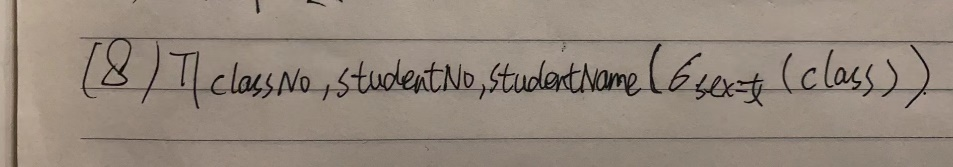 (8) π classNo, studentNo, studentName (σ sex=女 (class))